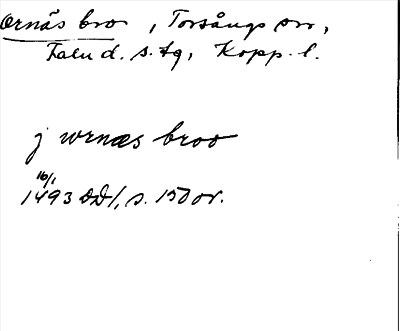 Ornäs bro, Torsångs sn,
Falu d. s. tg, Kopp. l.
j wrnæs broo
16/1
1493 DD1, s. 150 or.